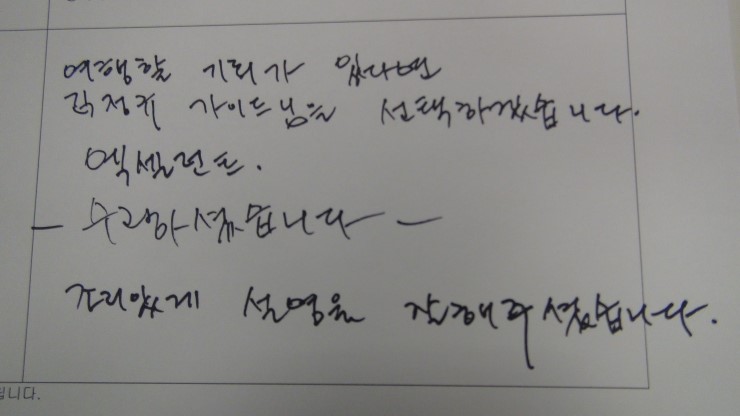 여행할 기회가 있다면
가이드님을 선택하겠습니다.
엑셀런트.
- 수고하셨습니다 -
조리있게 설명을 잘해주셨습니다.
입니다.